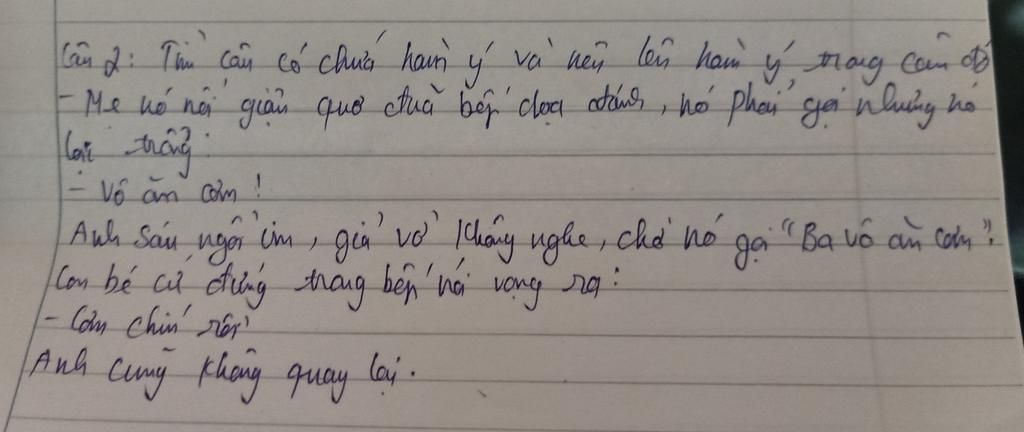 Câu 2: Tìm câu có chứa hàm ý và nêu lên hàm ý trong câu đó
- Mẹ nó nổi giận quơ đũa bếp dọa đánh, nó phải gọi nhưng nó
lại trổng:
- Vô ăn cơm!
Anh Sáu ngồi im, giả vờ không nghe, chờ nó gọi "Ba vô ăn cơm".
Con bé cứ đứng trong bếp nói vọng ra:
- Cơm chín rồi
Anh cũng không quay lại.